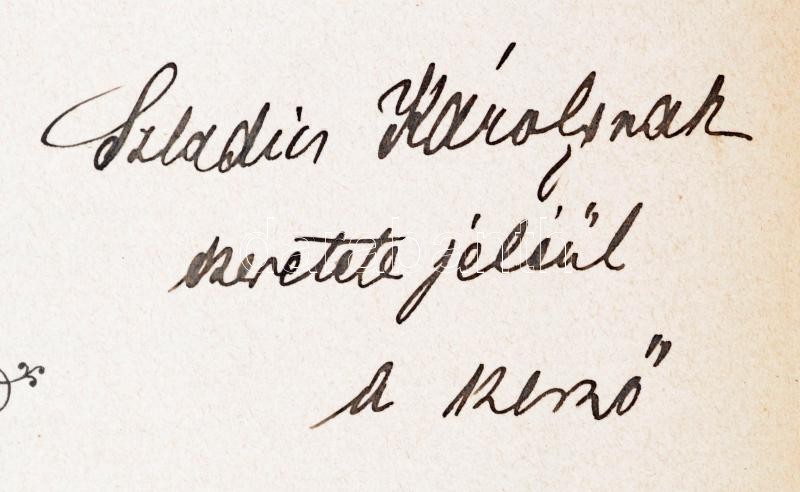 Szladics Károlynak
szeretete jeléül
a szerző